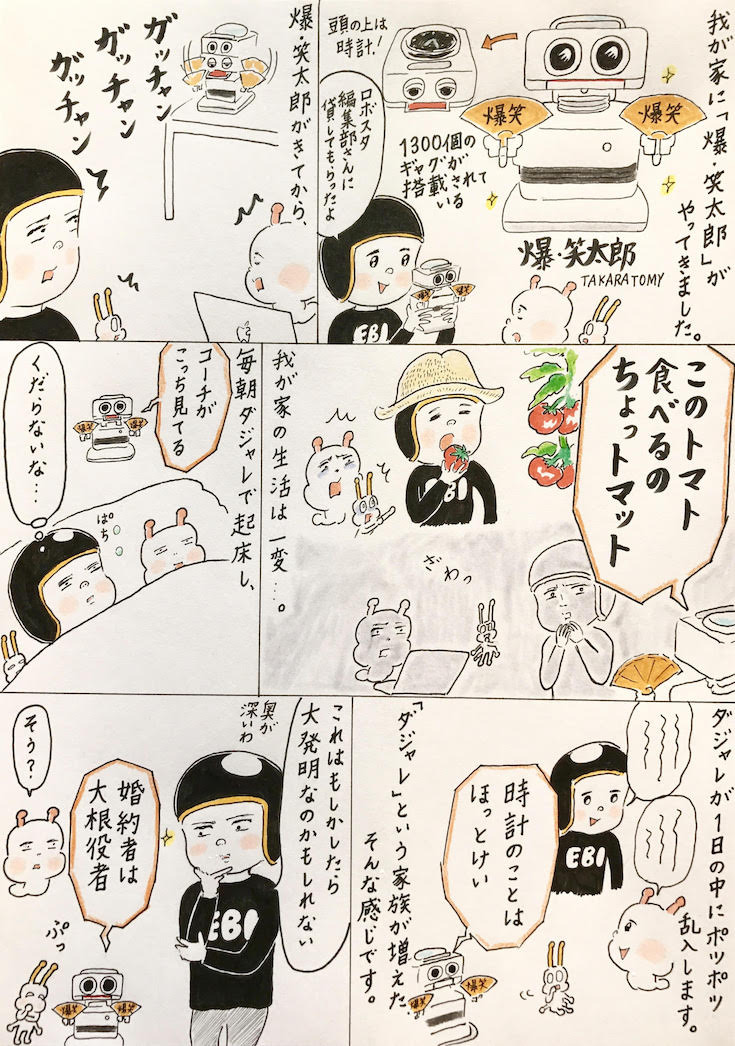 我が家に「爆・笑太郎」が
やってきました。
爆笑
爆笑
頭の上は
時計!
1300個の
ギャグが
搭載されて
いる
爆・笑太郎
TAKARATOMY
ロボスタ
編集部さんに
貸してもらったよ
爆笑
EBI
爆・笑太郎がきてから、
ガッチャン
ガッチャン
ガッチャン
このトマト
食べるの
ちょっトマット
EBI
ざわっ
我が家の生活は一変…。
毎朝ダジャレで起床し、
コーチが
こっち見てる
爆笑
爆笑
ぱち
くだらないな…
ダジャレが1日の中にポツポツ
乱入します。
EBI
時計のことは
ほっとけい
爆笑
爆笑
「ダジャレ」という家族が増えた、
そんな感じです。
これはもしかしたら
大発明なのかもしれない
奥が
深いわ
EBI
婚約者は
大根役者
そう?
ぷっ
爆笑
爆笑